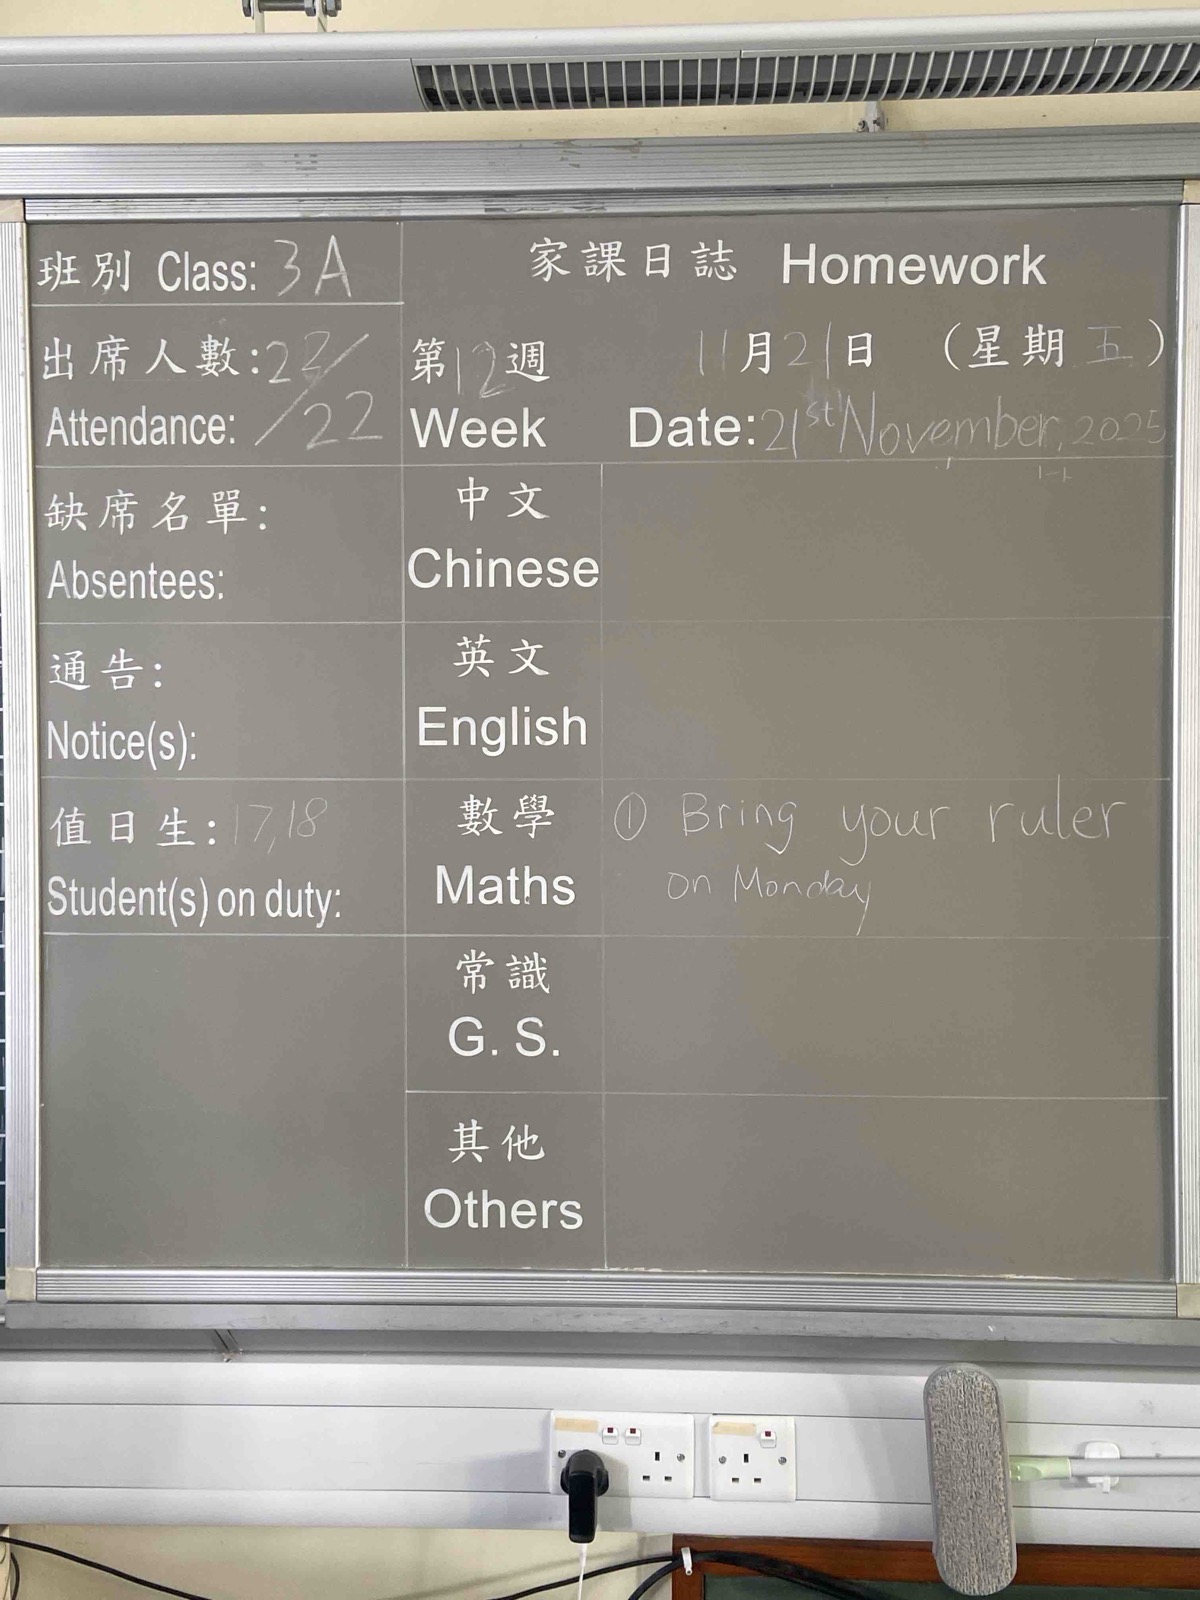 班別 Class: 3A
出席人數: 22/
Attendance: /22
缺席名單:
Absentees:
通告:
Notice(s):
值日生: 17,18
Student(s) on duty:
家課日誌 Homework
第12週 11月21日 (星期五)
Week Date: 21st November, 2025
中文
Chinese
英文
English
數學 ① Bring your ruler
Maths on Monday
常識
G. S.
其他
Others